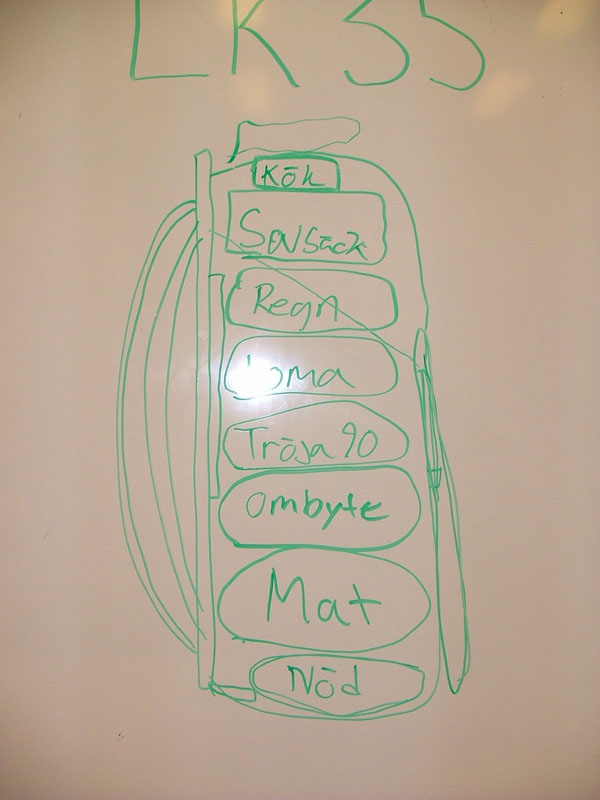 LK 35
Kök
Sovsäck
Regn
Tröja 90
ombyte
Mat
Nöd